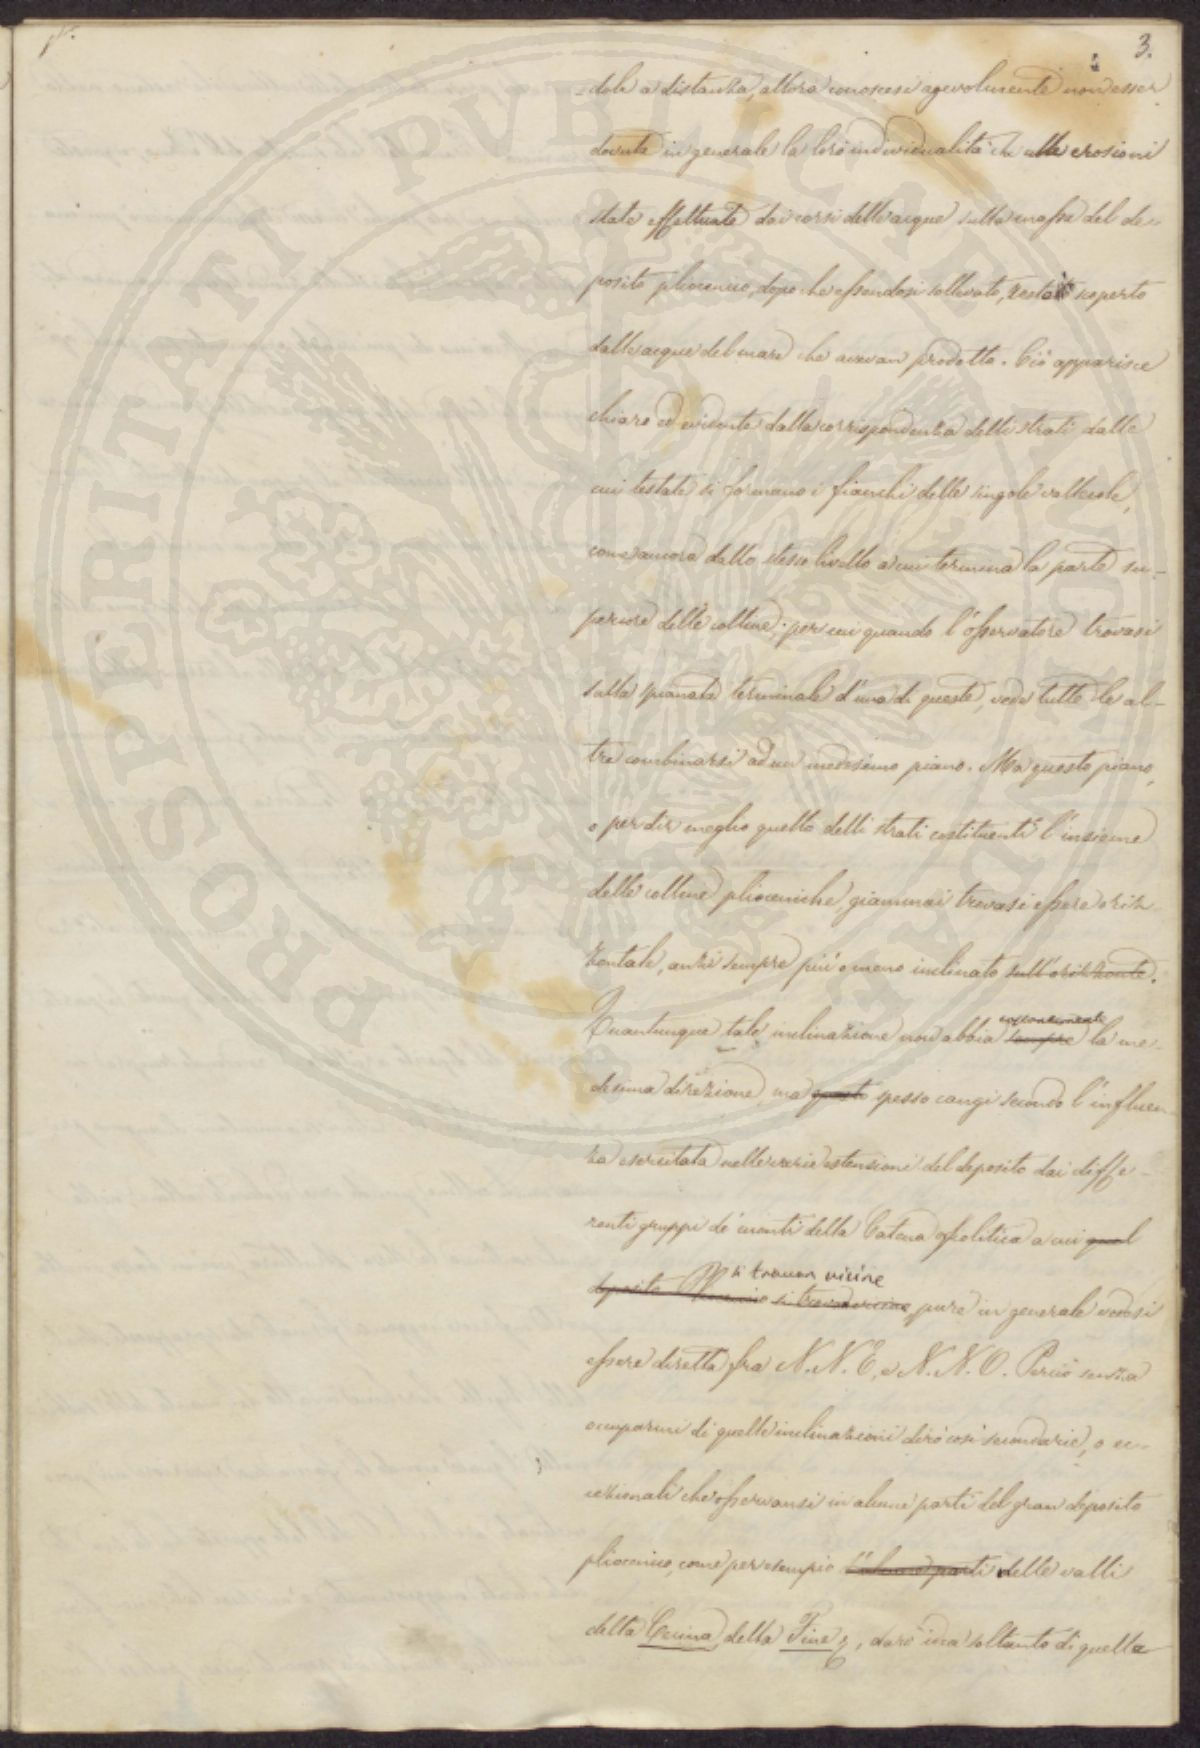 3.
-dole a distanza, allora conoscesi agevolmente non esser
dovuta in generale la loro individualità che alle erosioni
state effettuate dai corsi delle acque sulla massa del de-
posito pliocenico, dopo che essendosi sollevato, restato scoperto
dalle acque del mare che avevan prodotto. Ciò apparisce
chiaro ed evidente dalla corrispondenza delli strati dalle
cui testate si formano i fianchi delle singole vallecole,
come ancora dallo stesso livello a cui termina la parte su-
periore delle colline; per cui quando l'osservatore trovasi
sulla spianata terminale d'una di queste, vede tutte le al-
tre combinarsi ad un medesimo piano. Ma questo piano,
o per dir meglio quello delli strati costituenti l'insieme
delle colline plioceniche, giammai trovasi essere oriz-
zontale, anzi sempre più o meno inclinato sull'orizzonte.
Quantunque tale inclinazione non abbia sempre la me-
desima direzione, ma questo spesso cangi secondo l'influen-
za esercitata nelle varie estensioni del deposito dai diffe-
renti gruppi de' monti della Catena ofiolitica a cui qual
si trovan vicine
deposito Pliocenico si trova vicino, pure in generale vedesi
essere diretta fra N. N. E, e N. N. O. Perciò senza
occuparmi di quelle inclinazioni dirò così secondarie, o ec-
cezionali che osservansi in alcune parti del gran deposito
pliocenico, come per esempio in alcune parti delle valli
della Cecina, della Fine &, darò idea soltanto di quella
PROSPERITATI PUBLICAE AUGENDAE